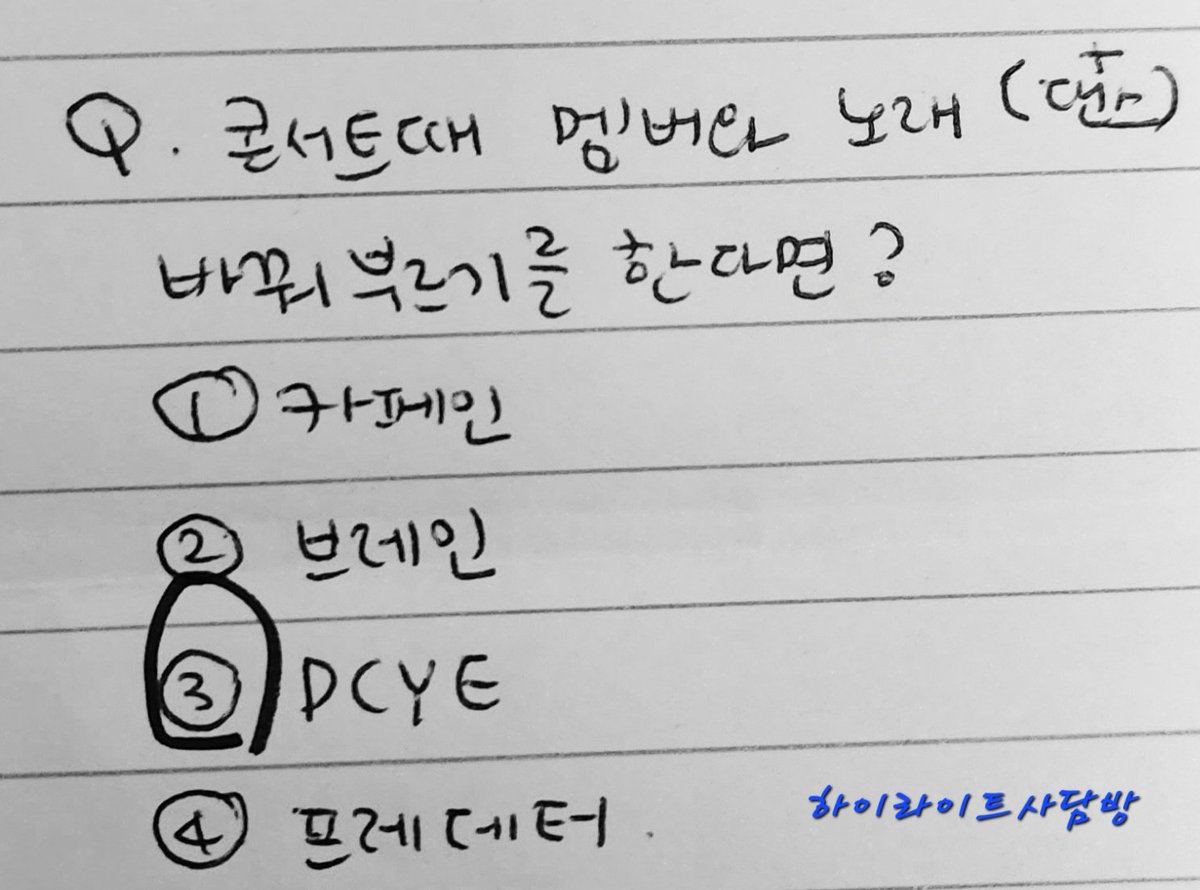 Q. 콘서트때 멤버와 노래 (댄스)
바꿔부르기를 한다면?
① 카페인
② 브레인
③ DCYE
④ 프레데터.
하이라이트사담방